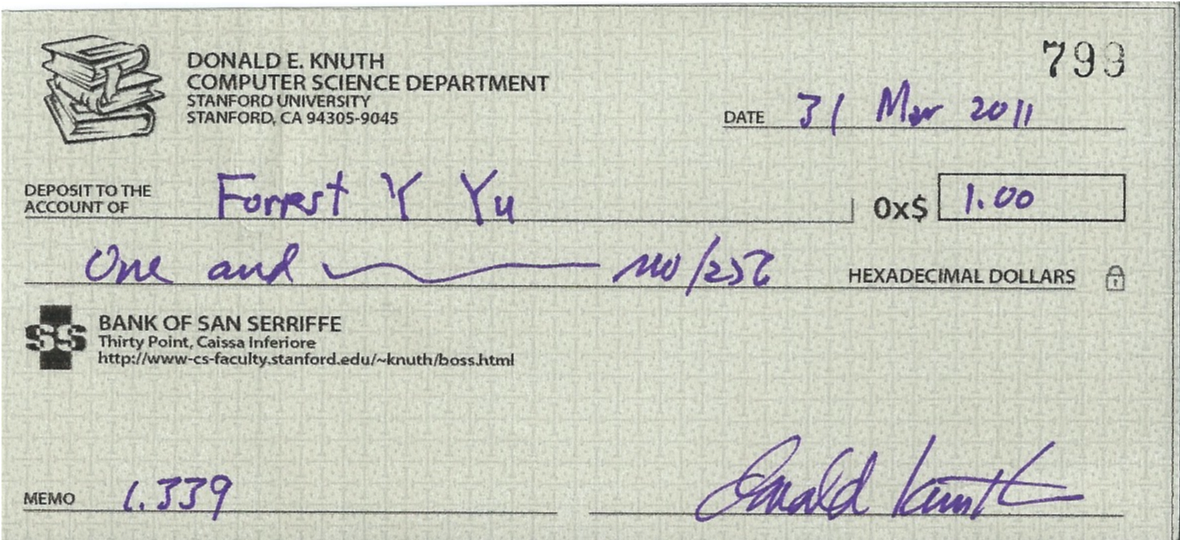 DONALD E. KNUTH
COMPUTER SCIENCE DEPARTMENT
STANFORD UNIVERSITY
STANFORD, CA 94305-9045
799
DATE 31 Mar 2011
DEPOSIT TO THE
ACCOUNT OF Forrest Y Yu 0x$ 1.00
One and no/256 HEXADECIMAL DOLLARS
SS
BANK OF SAN SERRIFFE
Thirty Point, Caissa Inferiore
http://www-cs-faculty.stanford.edu/~knuth/boss.html
MEMO 1.339 Donald Knuth